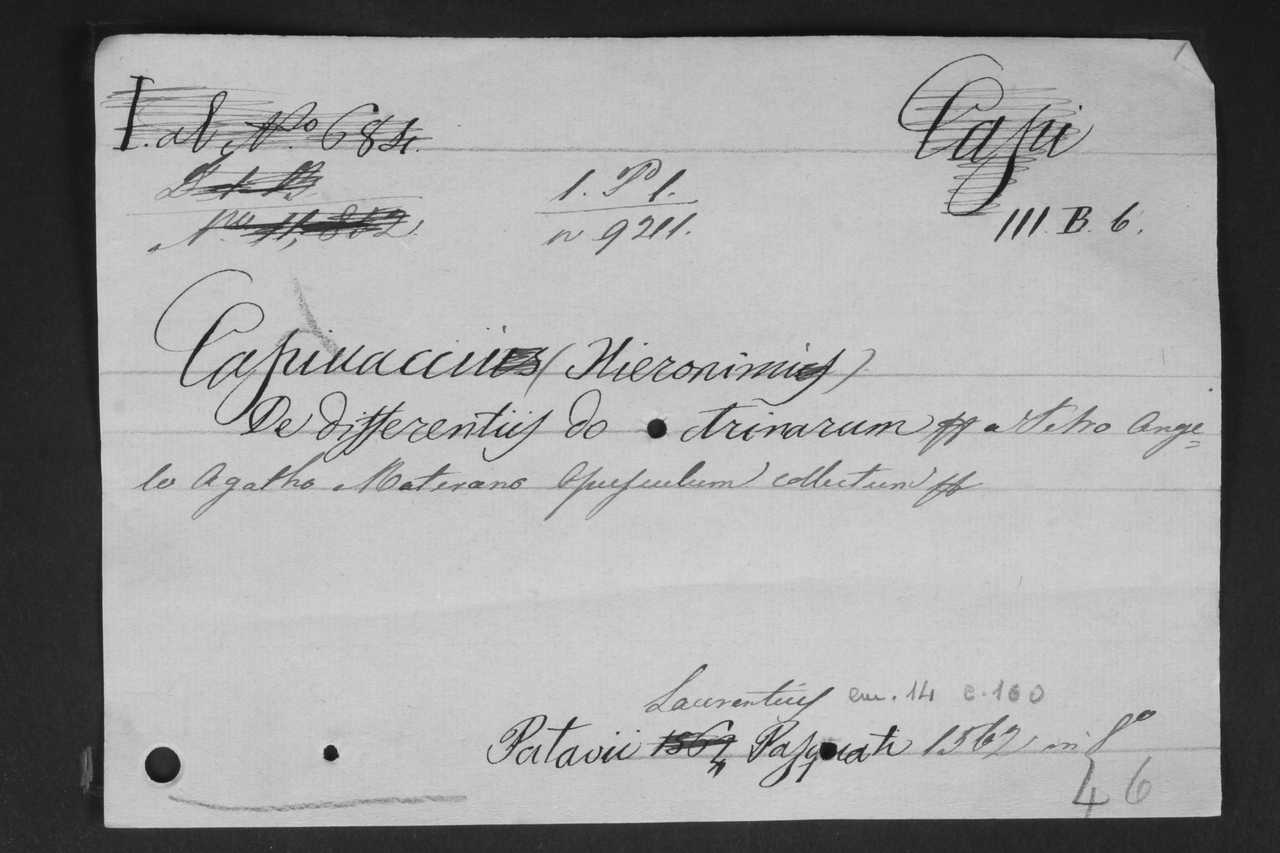 I. al N.o 684.
Capi
N.o 11,862
1. P 1.
n 9211.
III. B. 6.
Capivaccius (Hieronimus)
De differentiis do ctrinarum // a Petro Ange=
lo Agatho Materano Opusculum collectum //
Laurentius cm. 14 c. 160
Patavii 1562 Pasquati 1562 in 8o
4 6